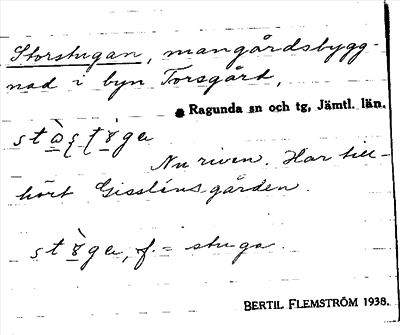 Storstugan, mangårdsbygg-
nad i byn Torsgård,
Ragunda sn och tg, Jämtl. län.
Nu riven. Har till-
hört Gisslénsgården.
f. = stuga.
BERTIL FLEMSTRÖM 1938.